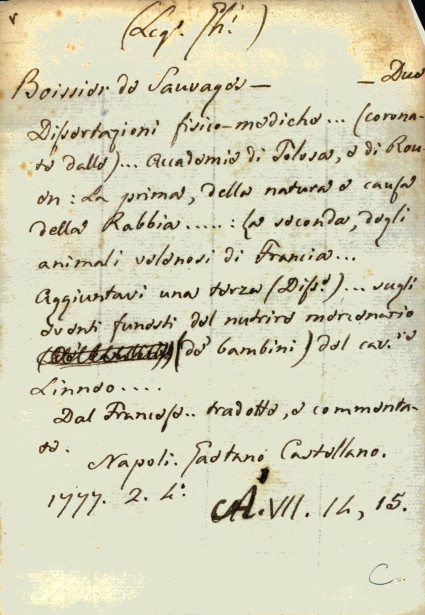 (Leg. Ph.i)
Boissier de Sauvages — — Due
Dissertazioni fisico-mediche... (corona-
te dalle)... Accademie di Tolosa, e di Rou-
en: La prima, della natura e causa
della Rabbia.....: la seconda, degli
animali velenosi di Francia...
Aggiuntavi una terza (Diss.e)... sugli
eventi funesti del nutrire mercenario
(de' bambini) del cav.re
Linneo....
Dal Francese.. tradotte, e commenta-
te.
Napoli. Gaetano Castellano.
1777. 2. 4.o
A. VII. 14, 15.
C.